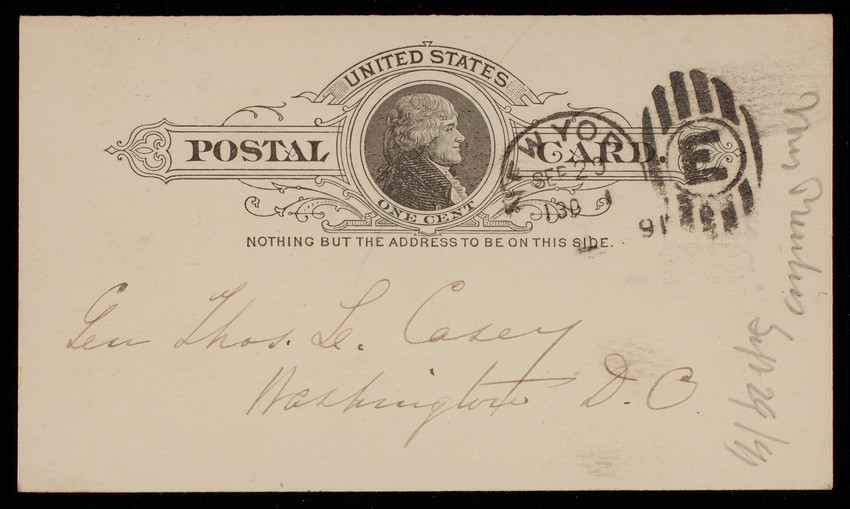 UNITED STATES
POSTAL CARD.
ONE CENT
NOTHING BUT THE ADDRESS TO BE ON THIS SIDE.
NEW YOR
SEP 29
130
91
E
Gen Thos. L. Casey
Washington D. C.
Sept 29/91